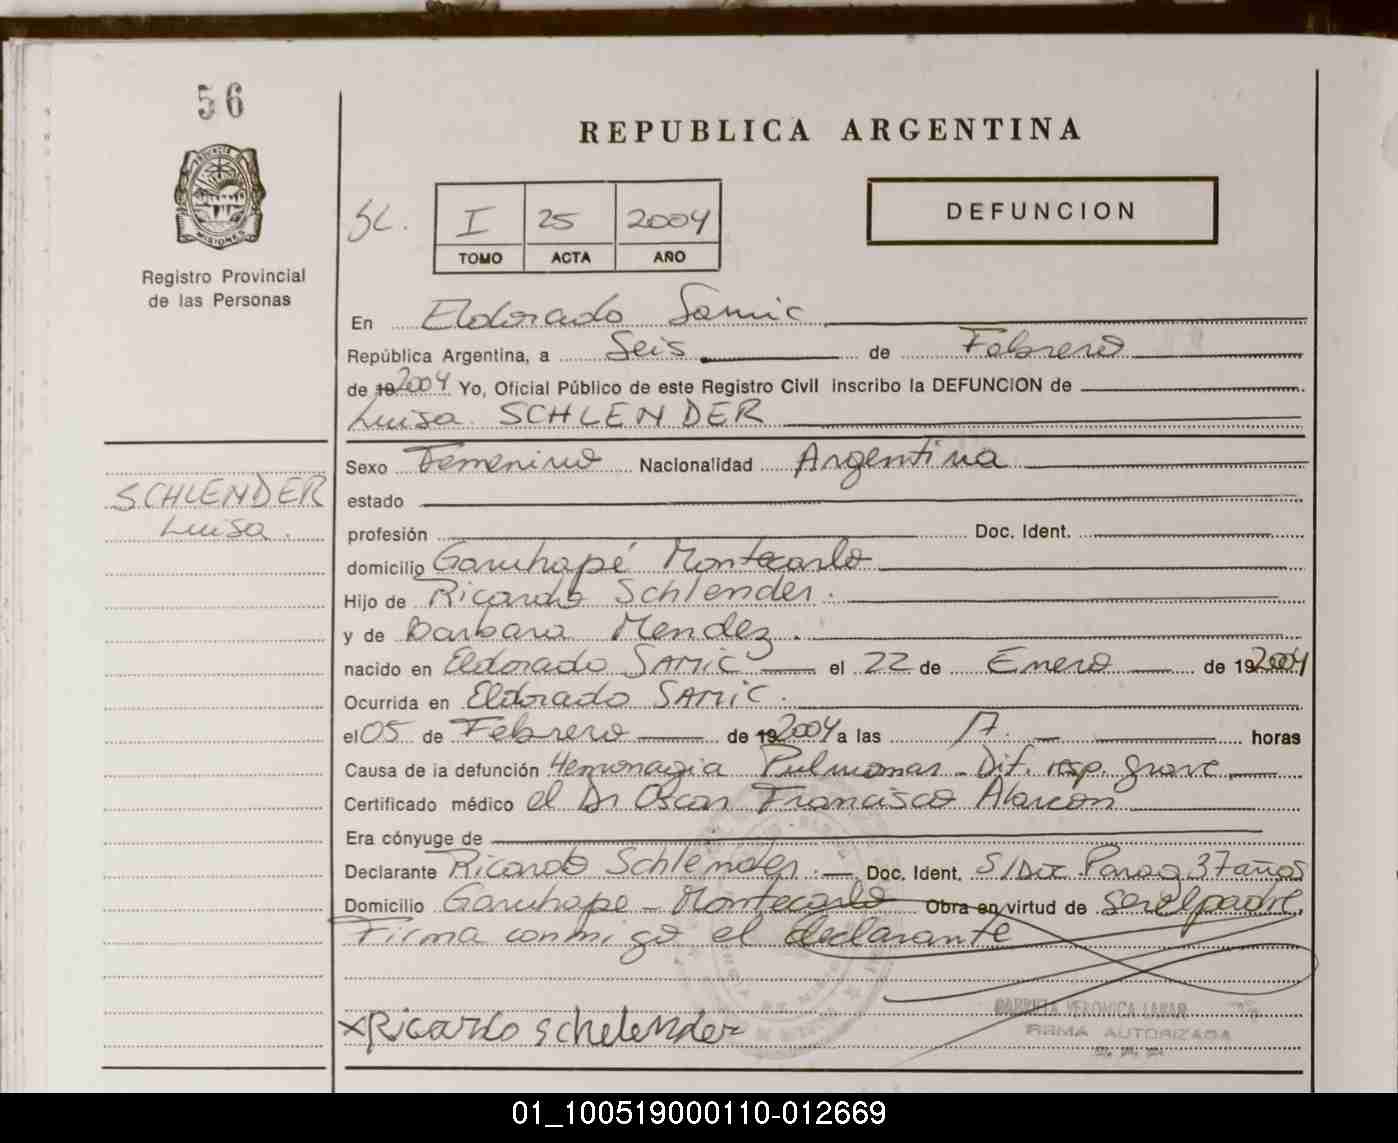 56
PROVINCIA DE
MISIONES
Registro Provincial
de las Personas
REPUBLICA ARGENTINA
SC. I 25 2004
TOMO ACTA AÑO
DEFUNCION
En Eldorado Samic
República Argentina, a Seis de Febrero
de 19 2004 Yo, Oficial Público de este Registro Civil inscribo la DEFUNCION de
Luisa SCHLENDER
Sexo Femenino Nacionalidad Argentina
SCHLENDER
Luisa.
estado
profesión Doc. Ident.
domicilio Garuhapé Montecarlo
Hijo de Ricardo Schlender.
y de Barbara Mendez.
nacido en Eldorado SAMIC el 22 de Enero de 19 2004
Ocurrida en Eldorado SAMIC.
el 05 de Febrero de 19 2004 a las 17. horas
Causa de la defunción Hemorragia Pulmonar - Dif. resp. grave
Certificado médico el Dr Oscar Francisco Alarcon
Era cónyuge de
Declarante Ricardo Schlender. Doc. Ident. S/Doc Parag 37 años
Domicilio Garuhape - Montecarlo Obra en virtud de ser el padre,
Firma conmigo el declarante
VERONICA
FIRMA AUTORIZADA
x Ricardo schelender
01_100519000110-012669